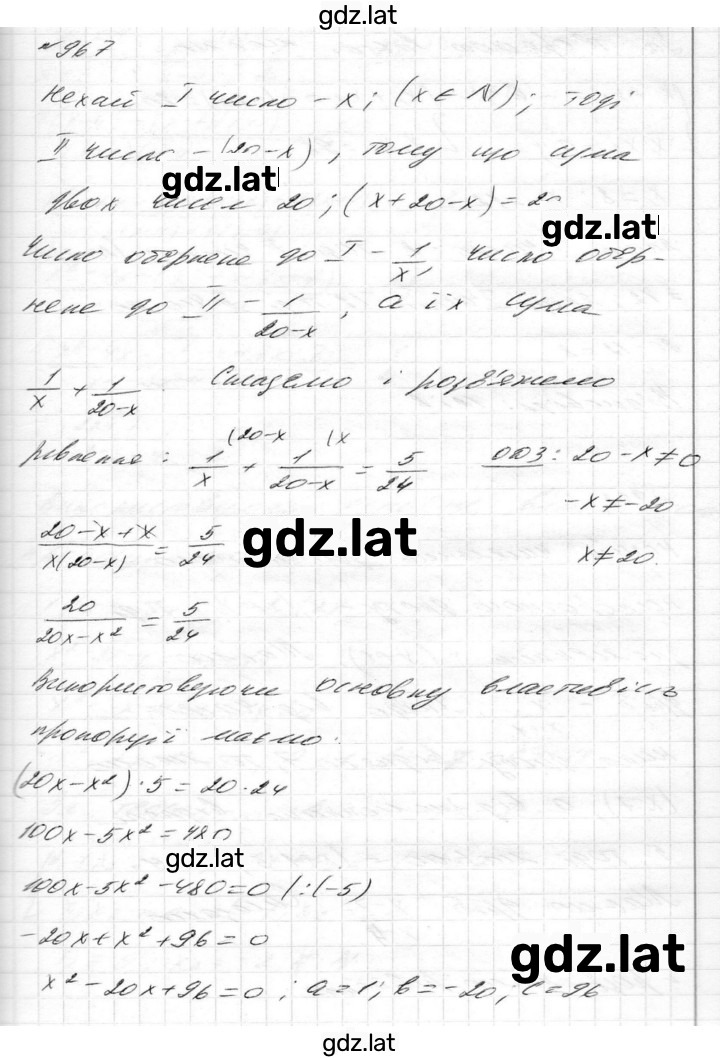 gdz.lat
№967
Нехай I число - x; (x ∈ N); тоді
II число - (20-x), тому що сума
gdz.lat
двох чисел 20; (x+20-x)=20
gdz.lat
Число обернене до I - 1/x, число обер-
нене до II - 1/(20-x), а їх сума
1/x + 1/(20-x). Складемо і розв'яжемо
рівняння: 1/x (20-x + 1/(20-x) (x = 5/24 ОДЗ: 20-x≠0
-x≠-20
(20-x+x)/(x(20-x)) = 5/24 x≠20.
gdz.lat
20/(20x-x²) = 5/24
Використовуючи основну властивість
пропорції маємо:
(20x-x²)·5=20·24
100x-5x²=480
gdz.lat
100x-5x²-480=0 /:(-5)
-20x+x²+96=0
gdz.lat
x²-20x+96=0; a=1; b=-20; c=96
gdz.lat